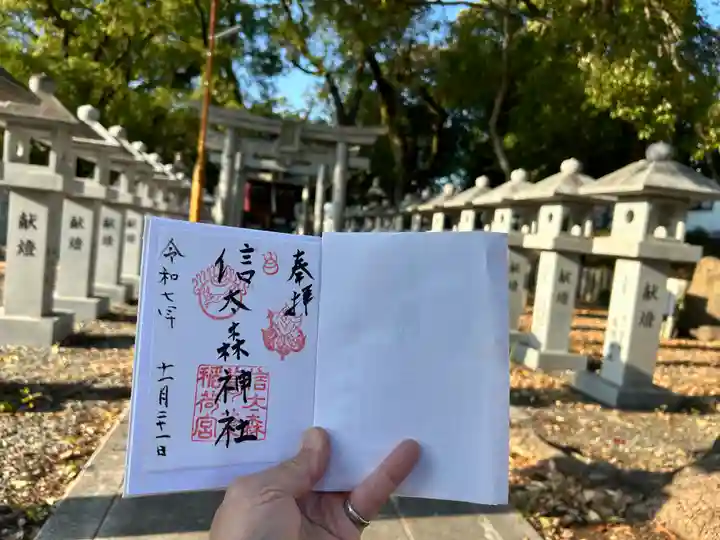 奉拝
信太森神社
信太森
葛葉
稲荷宮
令和七年
十一月二十一日
献燈
献燈
献燈
献燈
献燈
献燈